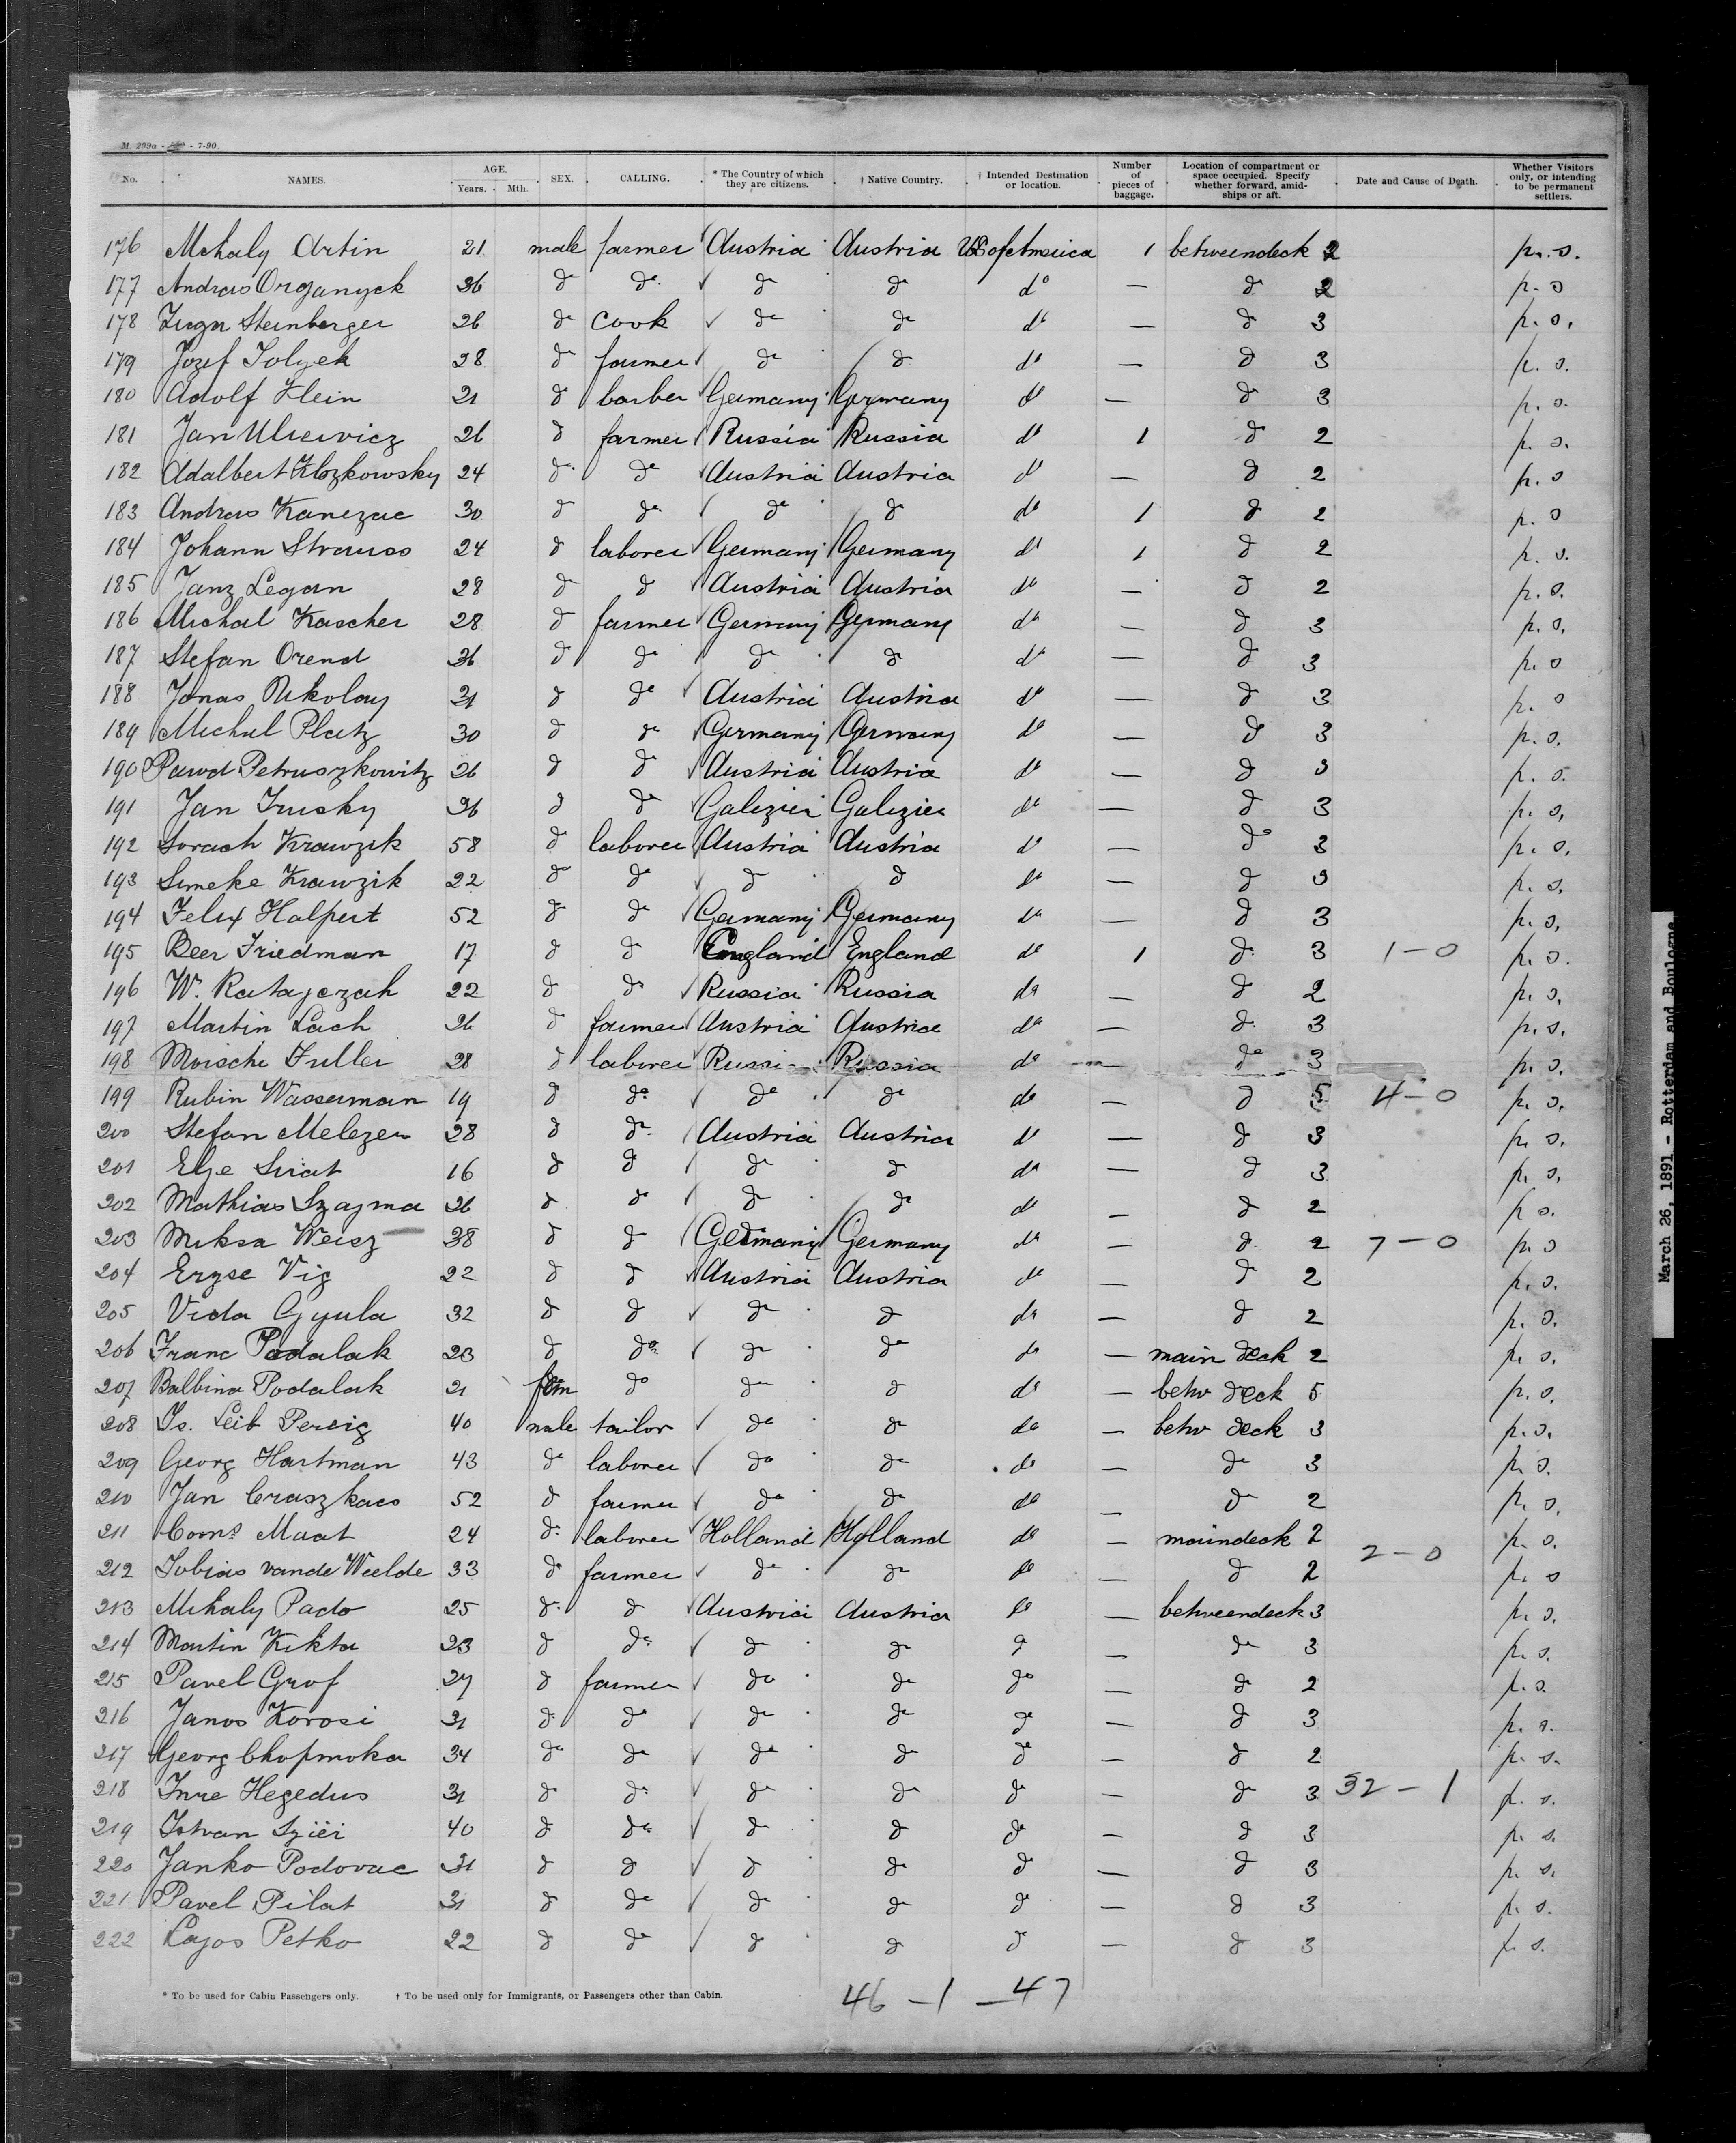 M. 299a - 7-90.
No. NAMES. AGE. Years. Mth. SEX. CALLING. * The Country of which they are citizens. † Native Country. † Intended Destination or location. Number of pieces of baggage. Location of compartment or space occupied. Specify whether forward, amidships or aft. Date and Cause of Death. Whether Visitors only, or intending to be permanent settlers.
176 Mehaly Artin 21 male farmer Austria Austria US of America 1 betweendeck 2 p. s.
177 Andras Organyek 36 do do do do do — do 2 p. s
178 Steinberger 26 do cook do do do — do 3 p. s.
179 Jozef Solyek 28 do farmer do do do — do 3 p. s.
180 Adolf Klein 21 do barber Germany Germany do — do 3 p. s.
181 Jan Ulrewicz 26 do farmer Russia Russia do 1 do 2 p. s.
182 Adalbert Klozkowsky 24 do do Austria Austria do — do 2 p. s
183 Andras Kanezac 30 do do do do do 1 do 2 p. s
184 Johann Strauss 24 do laborer Germany Germany do 1 do 2 p. s.
185 Janz Legan 28 do do Austria Austria do — do 2 p. s.
186 Michal Kascher 28 do farmer Germany Germany do — do 3 p. s.
187 Stefan Orend 36 do do do do do — do 3 p. s
188 Jonas Nikolay 21 do do Austria Austria do — do 3 p. s
189 Michal Platz 30 do do Germany Germany do — do 3 p. s.
190 Pawel Petruszkowitz 26 do do Austria Austria do — do 3 p. s.
191 Jan Trusky 36 do do Galizien Galizien do — do 3 p. s,
192 Sorach Krawzik 58 do laborer Austria Austria do — do 3 p. s.
193 Simeke Krawzik 22 do do do do do — do 3 p. s.
194 Felix Halpert 52 do do Germany Germany do — do 3 p. s,
195 Beer Friedman 17 do do England England do 1 do 3 1-0 p. s.
196 W. Ratajczah 22 do do Russia Russia do — do 2 p. s,
197 Martin Lach 26 do farmer Austria Austria do — do 3 p. s.
198 Moische Fuller 28 do laborer Russia Russia do — do 3 p. s.
199 Rubin Wasserman 19 do do do do do — do 5 4-0 p. s.
200 Stefan Melezen 28 do do Austria Austria do — do 3 p. s.
201 Elje Sirat 16 do do do do do — do 3 p. s,
202 Mathias Szajma 26 do do do do do — do 2 p s.
203 Miksa Weisz 38 do do Germany Germany do — do 2 7-0 p. s
204 Eryse Vig 22 do do Austria Austria do — do 2 p. s.
205 Vida Gyula 32 do do do do do — do 2 p. s.
206 Franc Podalak 23 do do do do do — main deck 2 p. s.
207 Balbina Podalak 21 fem do do do do — betw deck 5 p. s.
208 Is. Leib Perzig 40 male tailor do do do — betw deck 3 p. s.
209 Georg Hartman 43 do laborer do do do — do 3 p. s.
210 Jan Craszkaes 52 do farmer do do do — do 2 p. s.
211 Corns Maat 24 do laborer Holland Holland do — maindeck 2 p. s.
212 Tobias vande Weelde 33 do farmer do do do — do 2 2-0 p. s
213 Mihaly Pado 25 do do Austria Austria do — betweendeck 3 p. s.
214 Martin Kikta 23 do do do do do — do 3 p. s.
215 Pavel Grof 27 do farmer do do do — do 2 p. s.
216 Janos Korosi 31 do do do do do — do 3 p. s.
217 Georg Chopmoka 34 do do do do do — do 2 p. s.
218 Imre Hegedus 31 do do do do do — do 3 32-1 p. s.
219 Istvan Sziei 40 do do do do do — do 3 p. s.
220 Janko Podovac 31 do do do do do — do 3 p. s.
221 Pavel Pilat 31 do do do do do — do 3 p. s.
222 Lajos Petko 22 do do do do do — do 3 p. s.
* To be used for Cabin Passengers only. † To be used only for Immigrants, or Passengers other than Cabin.
46 - 1 - 47
March 26, 1891 - Rotterdam and Boulogne